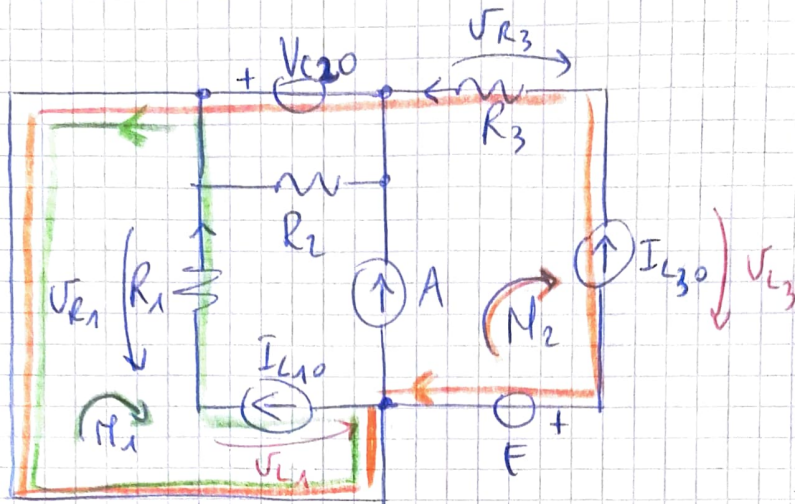 VR3
+ VC20
R3
R2
VR1 R1 A IL30 VL3
M2
IL10
M1
VL1
E +